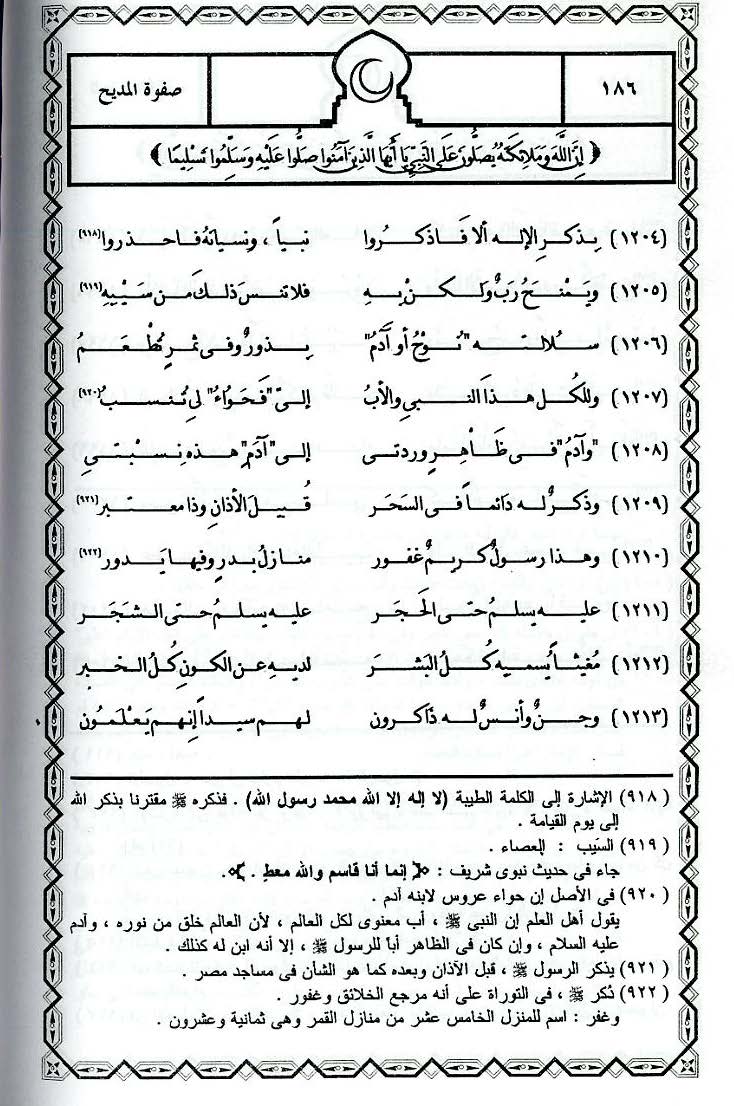 ١٨٦
صفوة المديح
﴿ إِنَّ اللَّهَ وَمَلَائِكَتَهُ يُصَلُّونَ عَلَى النَّبِيِّ يَا أَيُّهَا الَّذِينَ آمَنُوا صَلُّوا عَلَيْهِ وَسَلِّمُوا تَسْلِيمًا ﴾
(١٢٠٤) بِذكرِ الإلهِ ألا فَاذكرُوا نبياً ، ونسيانهُ فاحذروا (٩١٨)
(١٢٠٥) ويَمْنحُ رَبٌ ولكنْ بهِ فلا تنسَ ذلكَ من سَيْبِهِ (٩١٩)
(١٢٠٦) سُلالتهُ "نُوْحُ أو آدَمُ" بِذورٌ وفى ثمرٍ تُطْعَمُ
(١٢٠٧) وللكُل هذا النبيِ والأبُ إلىّ "فَحَوَاءُ" لى تُنسبُ (٩٢٠)
(١٢٠٨) "وآدمُ" فى ظَاهِرٍ وردتى إلى "آدَمٍ" هذه نِسْبتى
(١٢٠٩) وذكرٌ له دَائماً فى السَحَر قُبيلَ الأذانِ وذا معتبر (٩٢١)
(١٢١٠) وهذا رسولٌ كريمٌ غفور منازلُ بدرٍ وفيها يَدور (٩٢٢)
(١٢١١) عليه يسلمُ حتى الحَجَر عليه يسلمُ حتى الشجَر
(١٢١٢) مُغيثاً يُسميه كُلُ البَشر لديهِ عن الكونِ كُلُ الخبر
(١٢١٣) وجنٌ وأنسٌ له ذَاكرون لهم سيداً إنهم يَعْلَمُون
(٩١٨) الإشارة إلى الكلمة الطيبة (لا إله إلا الله محمد رسول الله) . فذكره ﷺ مقترنا بذكر الله
إلى يوم القيامة .
(٩١٩) السَيب : العصاء .
جاء فى حديث نبوى شريف : ﴿ إنما أنا قاسم والله معطٍ . ﴾.
(٩٢٠) فى الأصل إن حواء عروس لابنه آدم .
يقول أهل العلم إن النبى ﷺ ، أب معنوى لكل العالم ، لأن العالم خلق من نوره ، وآدم
عليه السلام ، وإن كان فى الظاهر أباً للرسول ﷺ ، إلا أنه ابن له كذلك .
(٩٢١) يذكر الرسول ﷺ ، قبل الآذان وبعده كما هو الشأن فى مساجد مصر .
(٩٢٢) ذُكر ﷺ ، فى التوراة على أنه مرجع الخلائق وغفور .
وغفر : اسم للمنزل الخامس عشر من منازل القمر وهى ثمانية وعشرون .